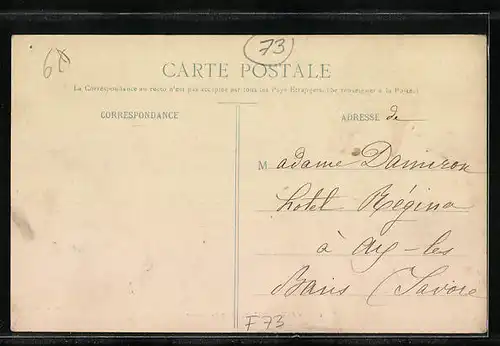 73
CARTE POSTALE
La Correspondance au recto n'est pas acceptée par tous les Pays Etrangers. (Se renseigner à la Poste.)
CORRESPONDANCE
ADRESSE de
Madame Damiron
hotel Régina
à Aix-les
Bains (Savoie
F 73